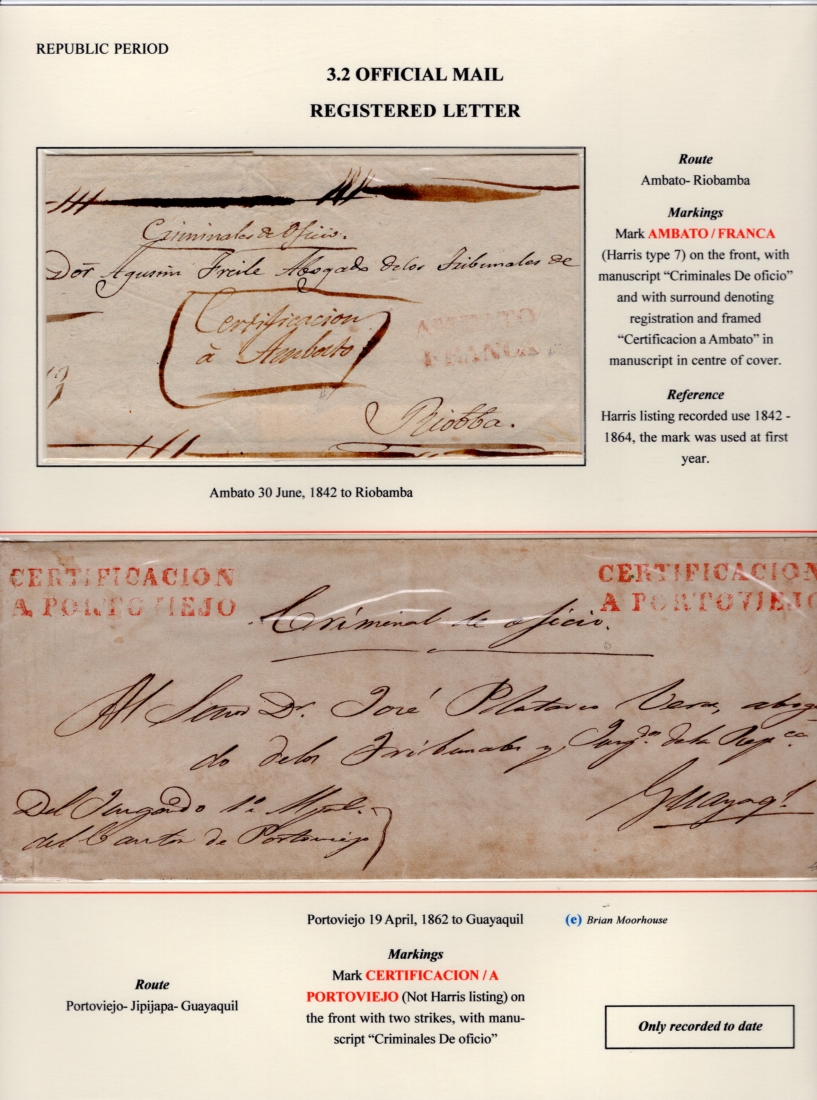 REPUBLIC PERIOD
3.2 OFFICIAL MAIL
REGISTERED LETTER
Criminales de Oficio.
Dor Agustin Freile Abogado delos Tribunales de
Certificacion
à Ambato
AMBATO
FRANCA
Riobba.
Route
Ambato- Riobamba
Markings
Mark AMBATO / FRANCA
(Harris type 7) on the front, with
manuscript “Criminales De oficio”
and with surround denoting
registration and framed
“Certificacion a Ambato” in
manuscript in centre of cover.
Reference
Harris listing recorded use 1842 -
1864, the mark was used at first
year.
Ambato 30 June, 1842 to Riobamba
CERTIFICACION
A PORTOVIEJO
CERTIFICACION
A PORTOVIEJO
Criminal de oficio.
Al Señor Dr. José Plutarco Vera, aboga
do delos Tribunales y Juzgos. dela Repca.
Guayaql.
Del Juzgado 1o. Mpal.
del Canton de Portoviejo
Portoviejo 19 April, 1862 to Guayaquil
(e) Brian Moorhouse
Route
Portoviejo- Jipijapa- Guayaquil
Markings
Mark CERTIFICACION / A
PORTOVIEJO (Not Harris listing) on
the front with two strikes, with manu-
script “Criminales De oficio”
Only recorded to date